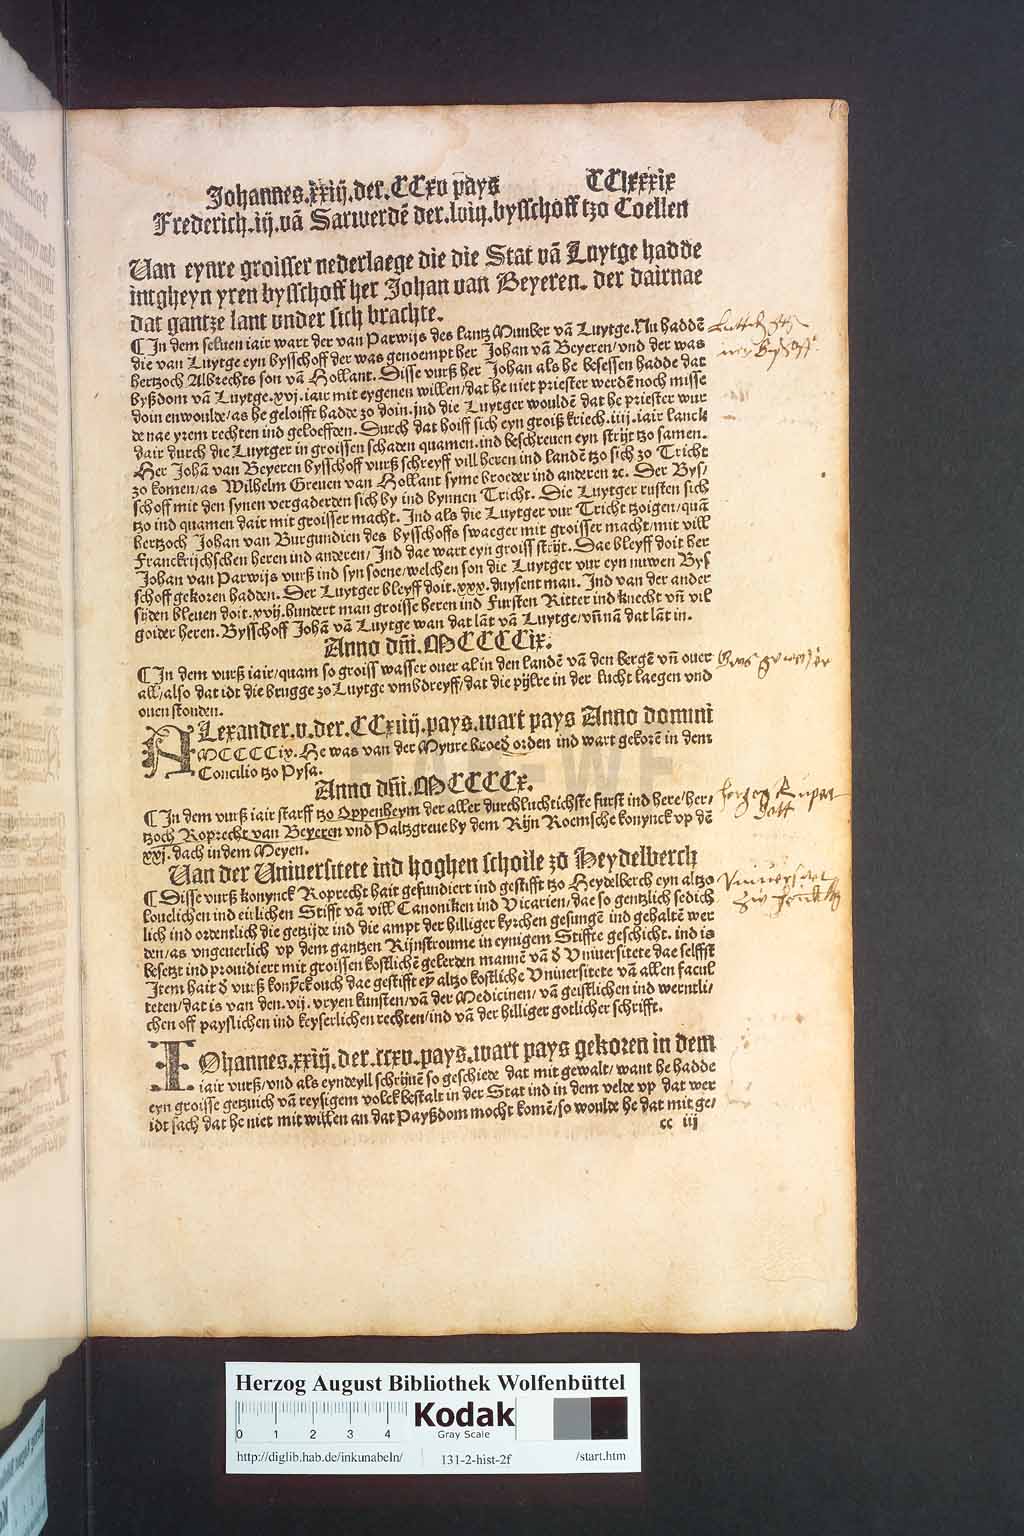 Johannes.xxiij.der.CCxv pays CClxxxix
Frederich.iij.vā Sarwerdē der.lviij.bysschoff tzo Coellen
Uan eynre groisser nederlaege die die Stat vā Luytge hadde
intgheyn yren bysschoff her Johan van Beyeren. der dairnae
dat gantze lant vnder sich brachte.
¶ In dem seluen iair wart der van Parwijs des lantz Munber vā Luytge. Nu haddē
die van Luytge eyn bysschoff der was genoempt her Johan vā Beyeren/vnd der was
hertzoch Albrechts son vā Hollant. Disse vurß her Johan als he besessen hadde dat
byßdom vā Luytge.xvj.iair mit eygenen willen/dat he niet priester werdē noch misse
doin enwoulde/as he geloifft hadde zo doin.ind die Luytger wouldē dat he priester wur
de nae yrem rechten ind geloeffden. Durch dat hoiff sich eyn groiß kriech.iiij.iair lanck
dair durch die Luytger in groissen schaden quamen.ind beschreuen eyn strijt tzo samen.
Her Johā van Beyeren bysschoff vurß schreyff vill heren ind landē tzo sich zo Tricht
zo komen/as Wilhelm Greuen van Hollant syme broeder ind anderen ꝛc. Der Bys/
schoff mit den synen vergaderden sich by ind bynnen Tricht. Die Luytger rusten sich
tzo ind quamen dair mit groisser macht. Ind als die Luytger vur Tricht tzoigen/quā
hertzoch Johan van Burgundien des bysschoffs swaeger mit groisser macht/mit vill
Franckrijchschen heren ind anderen/Ind dae wart eyn groiss strijt. Dae bleyff doit her
Johan van Parwijs vurß ind syn soene/welchen son die Luytger vur eyn nuwen Bys
schoff gekoren hadden. Der Luytger bleyff doit.xxx.duysent man. Ind van der ander
sijden bleuen doit.xvij.hundert man groisse heren ind Fursten Ritter ind knecht vn̄ vil
goider heren. Bysschoff Johā vā Luytge wan dat lāt vā Luytge/vn̄ nā dat lāt in.
Anno dn̄i.MCCCCix.
¶ In dem vurß iair/quam so groiss wasser ouer al in den landē vā den bergē vn̄ ouer
all/also dat idt die brugge zo Luytge vmbdreyff/dat die pijlre in der lucht laegen vnd
ouen stonden.
ALexander.v.der.CCxiiij.pays.wart pays Anno domini
MCCCCix. He was van der Mynre broed orden ind wart gekorē in dem
Concilio tzo Pysa.
Anno dn̄i.MCCCCx.
¶ In dem vurß iair starff tzo Oppenheym der aller durchluchtichste furst ind here/her/
tzoch Roprecht van Beyeren vnd Paltzgreue by dem Rijn Roemsche konynck vp dē
xxj.dach in dem Meyen.
Uan der Uniuersitete ind hoghen schoile zo Heydelberch
¶ Disse vurß konynck Roprecht hait gefundiert ind gestifft tzo Heydelberch eyn altzo
louelichen ind eirlichen Stifft vā vill Canoniken ind Vicarien/dae so gentzlich sedich
lich ind ordentlich die getzijde ind die ampt der hilliger kyrchen gesungē ind gehaltē wer
den/as vngeuerlich vp dem gantzen Rijnstroume in eynigem Stiffte geschicht. ind is
besetzt ind prouidiert mit groissen kostlichē gelerden mannē vā d Vniuersitete dae selffst
Item hait d vurß konȳck ouch dae gestifft eȳ altzo kostliche Vniuersitete vā allen facul
teten/dat is van den.vij.vryen kunsten/vā der Medicinen/vā geistlichen ind werntli/
chen off payslichen ind keyserlichen rechten/ind vā der hilliger gotlicher schrifft.
IOhannes.xxiij.der.ccxv.pays.wart pays gekoren in dem
iair vurß/vnd als eyndeyll schrijnē so geschiede dat mit gewalt/want he hadde
eyn groisse getzuich vā reysigem volck bestalt in der Stat ind in dem velde vp dat wer
idt sach dat he niet mit willen an dat Payßdom mocht komē/so woulde he dat mit ge/
cc iij
Herzog August Bibliothek Wolfenbüttel
0 1 2 3 4
Kodak
Gray Scale
http://diglib.hab.de/inkunabeln/ 131-2-hist-2f /start.htm